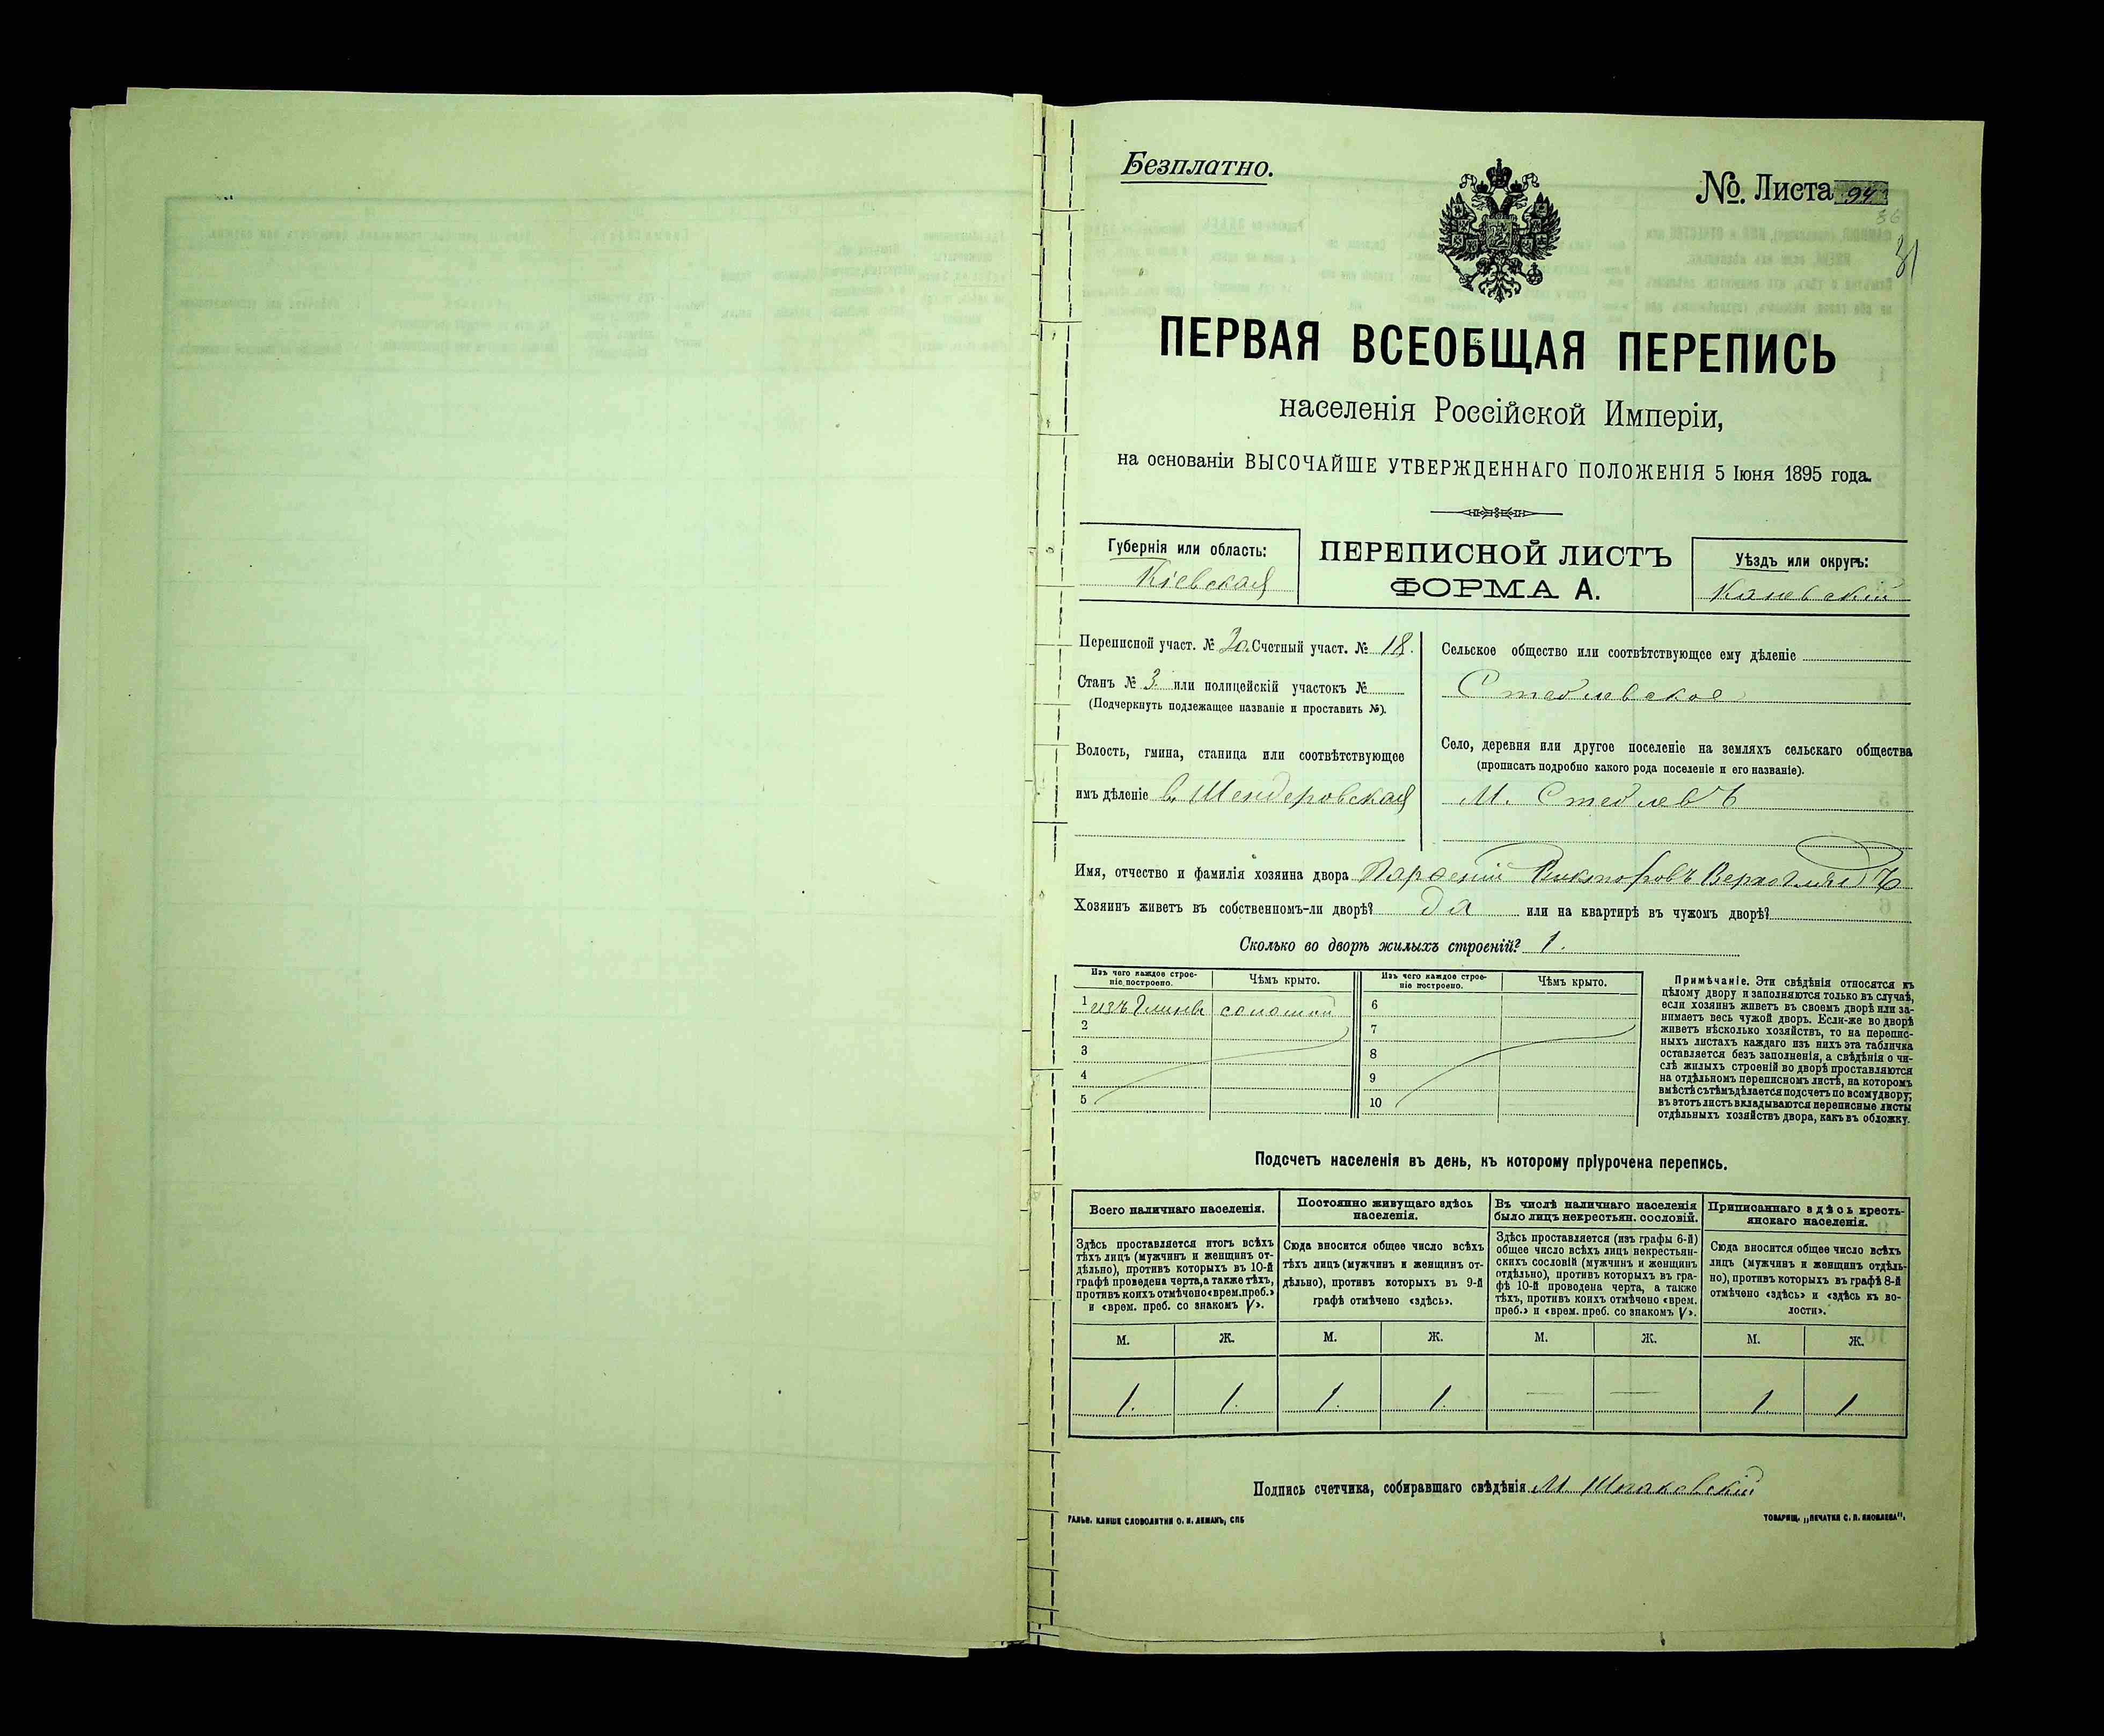 Безплатно.
№. Листа 94
86
31
ПЕРВАЯ ВСЕОБЩАЯ ПЕРЕПИСЬ
населенія Россійской Имперіи,
на основаніи ВЫСОЧАЙШЕ УТВЕРЖДЕННАГО ПОЛОЖЕНІЯ 5 Іюня 1895 года.
Губернія или область:
Кіевская
ПЕРЕПИСНОЙ ЛИСТЪ
ФОРМА А.
Уѣздъ или округъ:
Каневскій
Переписной участ. № Счетный участ. № 18.
Станъ № 3 или полицейскій участокъ №
(Подчеркнуть подлежащее названіе и проставить №).
Волость, гмина, станица или соотвѣтствующее
имъ дѣленіе в. Шендеровская
Сельское общество или соотвѣтствующее ему дѣленіе
Стеблевское
Село, деревня или другое поселеніе на земляхъ сельскаго общества
(прописать подробно какого рода поселеніе и его названіе).
М. Стеблевъ
Имя, отчество и фамилія хозяина двора Парѳеній Викторовъ
Хозяинъ живетъ въ собственномъ-ли дворѣ? да или на квартирѣ въ чужомъ дворѣ?
Сколько во дворѣ жилыхъ строеній? 1.
Изъ чего каждое строе-
ніе построено.
Чѣмъ крыто.
Изъ чего каждое строе-
ніе построено.
Чѣмъ крыто.
1 изъ глины соломой
2
3
4
5
6
7
8
9
10
Примѣчаніе. Эти свѣдѣнія относятся къ
цѣлому двору и заполняются только въ случаѣ,
если хозяинъ живетъ въ своемъ дворѣ или за-
нимаетъ весь чужой дворъ. Если-же во дворѣ
живетъ нѣсколько хозяйствъ, то на перепис-
ныхъ листахъ каждаго изъ нихъ эта табличка
оставляется безъ заполненія, а свѣдѣнія о чи-
слѣ жилыхъ строеній во дворѣ проставляются
на отдѣльномъ переписномъ листѣ, на которомъ
вмѣстѣ съ тѣмъ дѣлается подсчетъ по всему двору;
въ этотъ листъ вкладываются переписные листы
отдѣльныхъ хозяйствъ двора, какъ въ обложку.
Подсчетъ населенія въ день, къ которому пріурочена перепись.
Всего наличнаго населенія.
Здѣсь проставляется итогъ всѣхъ
тѣхъ лицъ (мужчинъ и женщинъ от-
дѣльно), противъ которыхъ въ 10-й
графѣ проведена черта, а также тѣхъ,
противъ коихъ отмѣчено «врем. преб.»
и «врем. преб. со знакомъ V».
Постоянно живущаго здѣсь
населенія.
Сюда вносится общее число всѣхъ
тѣхъ лицъ (мужчинъ и женщинъ от-
дѣльно), противъ которыхъ въ 9-й
графѣ отмѣчено «здѣсь».
Въ числѣ наличнаго населенія
было лицъ некрестьян. сословій.
Здѣсь проставляется (изъ графы 6-й)
общее число всѣхъ лицъ некрестьян-
скихъ сословій (мужчинъ и женщинъ
отдѣльно), противъ которыхъ въ гра-
фѣ 10-й проведена черта, а также
тѣхъ, противъ коихъ отмѣчено «врем.
преб.» и «врем. преб. со знакомъ V».
Приписаннаго здѣсь кресть-
янскаго населенія.
Сюда вносится общее число всѣхъ
лицъ (мужчинъ и женщинъ отдѣль-
но), противъ которыхъ въ графѣ 8-й
отмѣчено «здѣсь» и «здѣсь къ во-
лости».
М. Ж. М. Ж. М. Ж. М. Ж.
1. 1. 1. 1. — — 1 1
Подпись счетчика, собиравшаго свѣдѣнія М. Шпаковскій
ГАЛЬВ. КЛИШЕ СЛОВОЛИТНИ О. И. ЛЕМАНЪ, СПБ
ТОВАРИЩ. „ПЕЧАТНЯ С. П. ЯКОВЛЕВА".